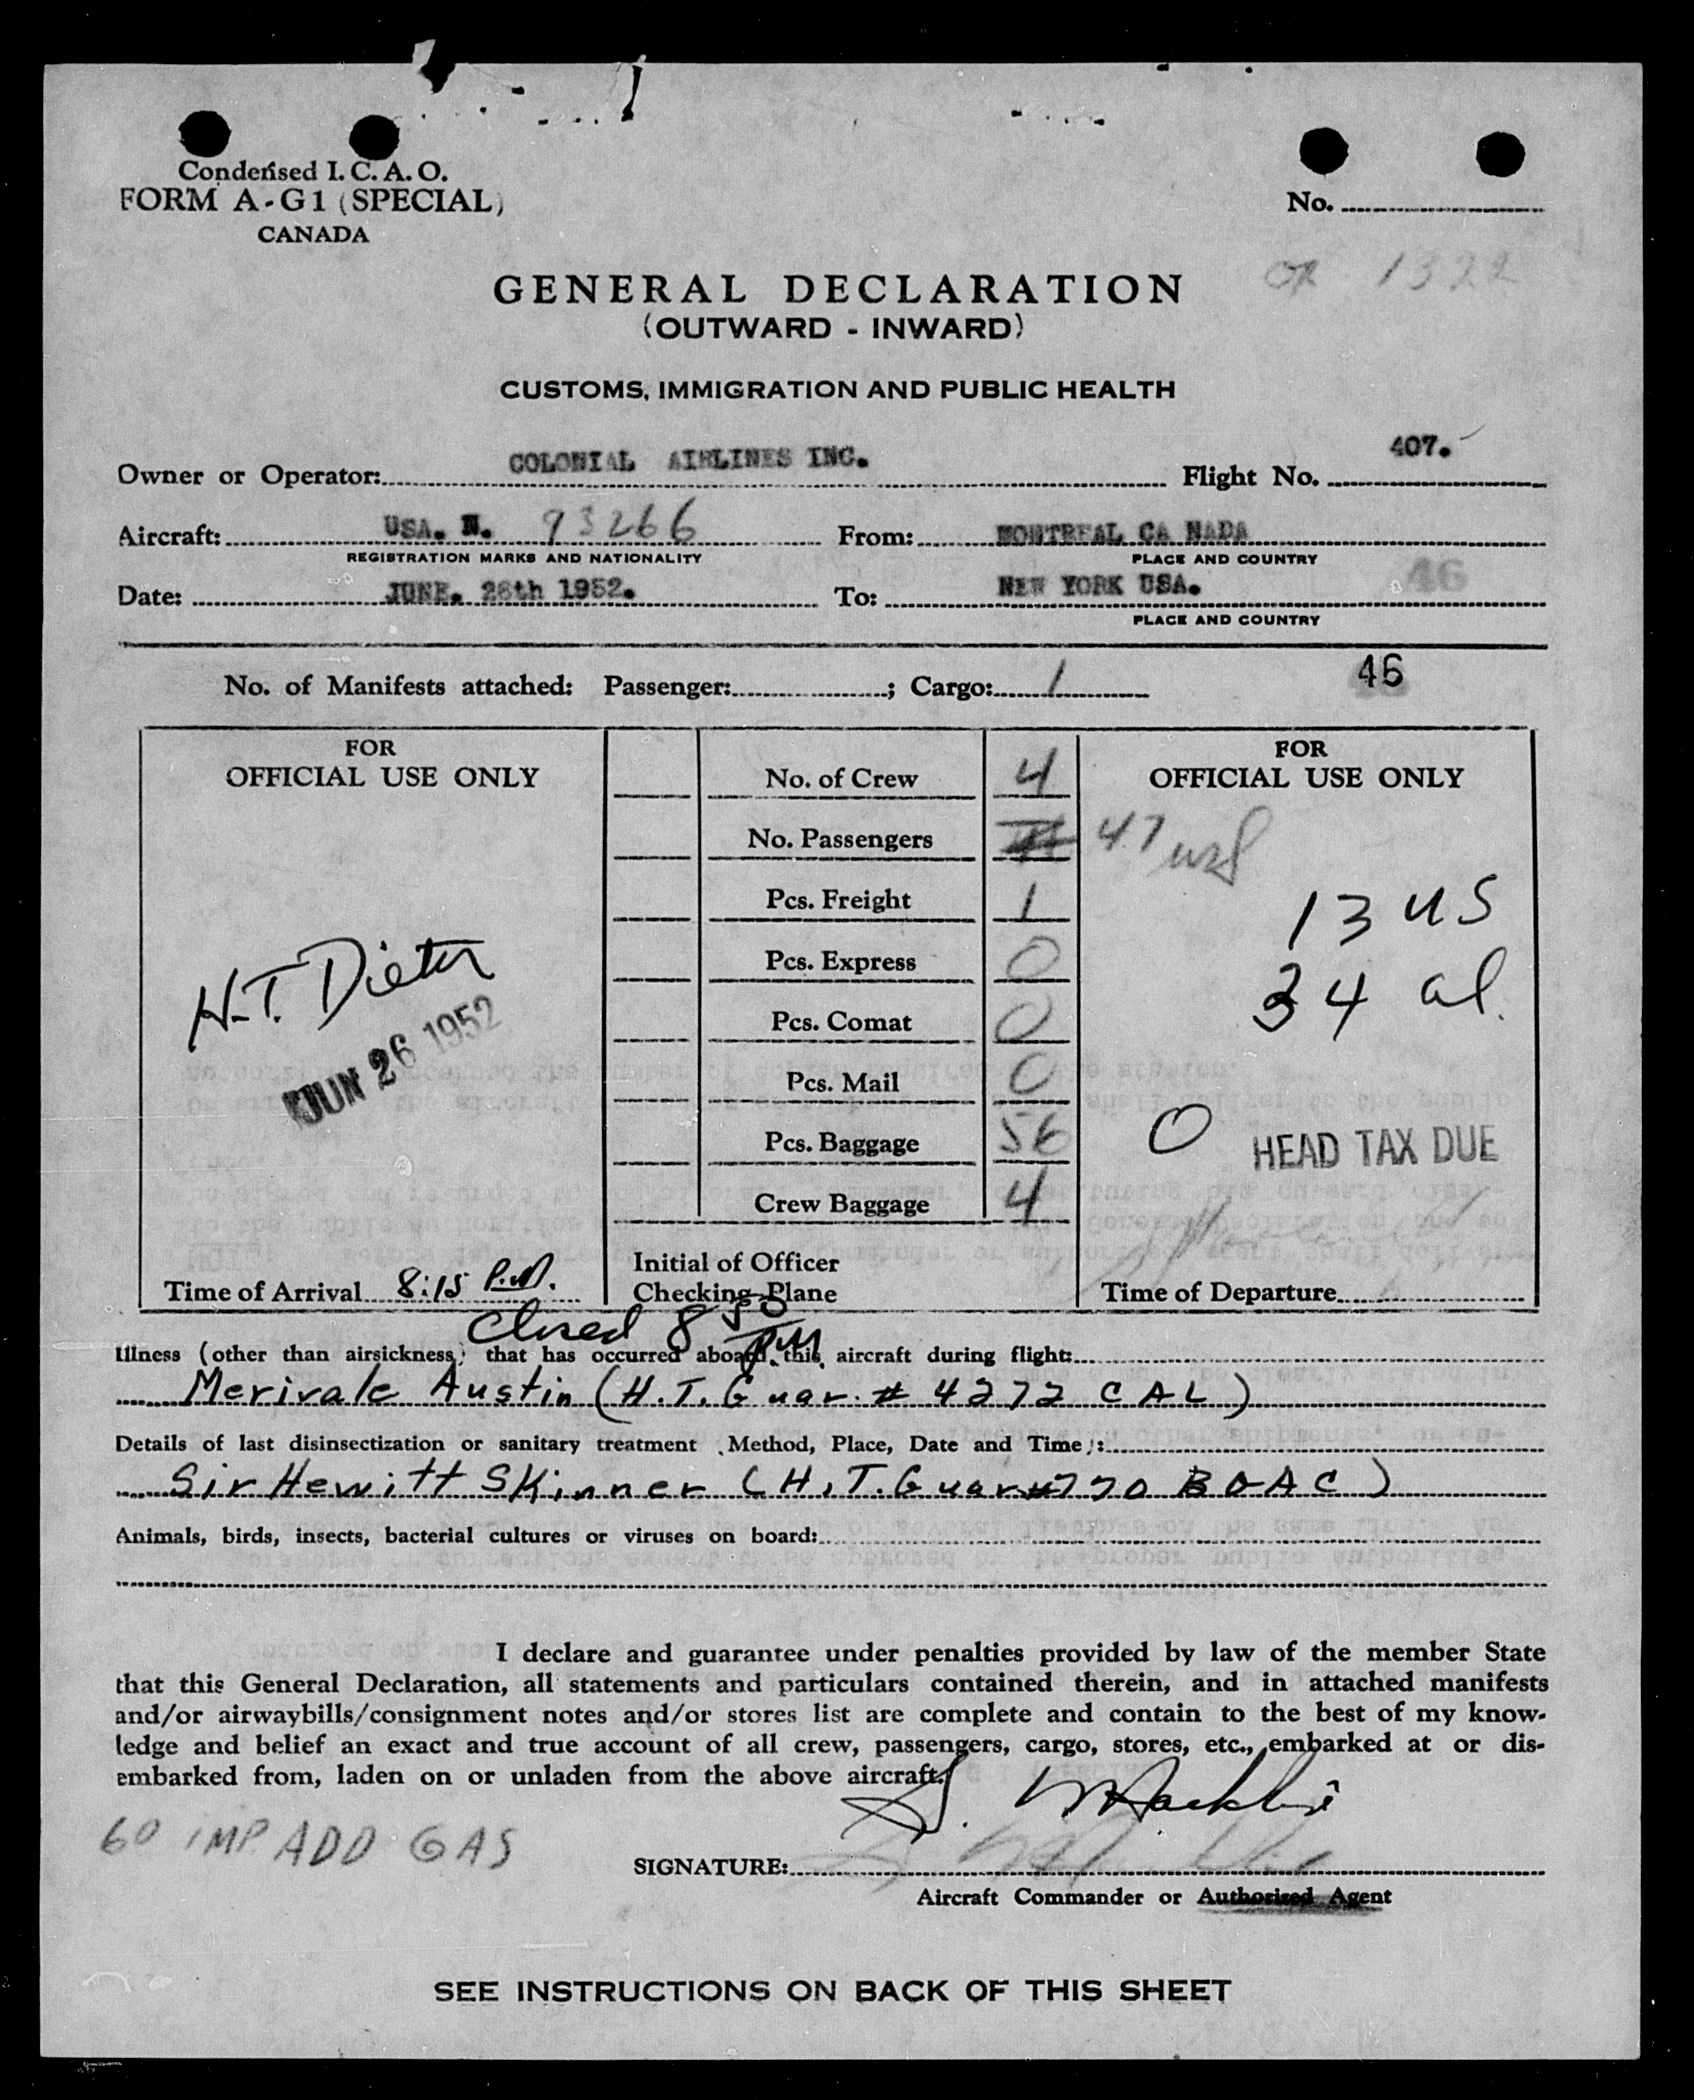 Condensed I. C. A. O.
FORM A-G1 (SPECIAL)
CANADA
No.
1322
GENERAL DECLARATION
(OUTWARD - INWARD)
CUSTOMS, IMMIGRATION AND PUBLIC HEALTH
Owner or Operator: COLONIAL AIRLINES INC. Flight No. 407.
Aircraft: USA. N. 93266 From: MONTREAL CA NADA
REGISTRATION MARKS AND NATIONALITY PLACE AND COUNTRY
46
Date: JUNE. 26th 1952. To: NEW YORK USA.
PLACE AND COUNTRY
No. of Manifests attached: Passenger: ; Cargo: 1 46
FOR
OFFICIAL USE ONLY
H.T. Dieter
JUN 26 1952
Time of Arrival 8:15 P.M.
No. of Crew 4
No. Passengers 47
Pcs. Freight 1
Pcs. Express 0
Pcs. Comat 0
Pcs. Mail 0
Pcs. Baggage 56
Crew Baggage 4
Initial of Officer
Checking Plane
FOR
OFFICIAL USE ONLY
13 US
34 al.
0 HEAD TAX DUE
Time of Departure
Closed 8 50 PM
Illness (other than airsickness) that has occurred aboard this aircraft during flight:
Merivale Austin (H.T. Guar. # 4272 CAL)
Details of last disinsectization or sanitary treatment (Method, Place, Date and Time):
Sir Hewitt Skinner (H.T. Guar #770 BOAC)
Animals, birds, insects, bacterial cultures or viruses on board:
I declare and guarantee under penalties provided by law of the member State
that this General Declaration, all statements and particulars contained therein, and in attached manifests
and/or airwaybills/consignment notes and/or stores list are complete and contain to the best of my know-
ledge and belief an exact and true account of all crew, passengers, cargo, stores, etc., embarked at or dis-
embarked from, laden on or unladen from the above aircraft.
60 IMP ADD GAS
SIGNATURE:
Aircraft Commander or Authorized Agent
SEE INSTRUCTIONS ON BACK OF THIS SHEET